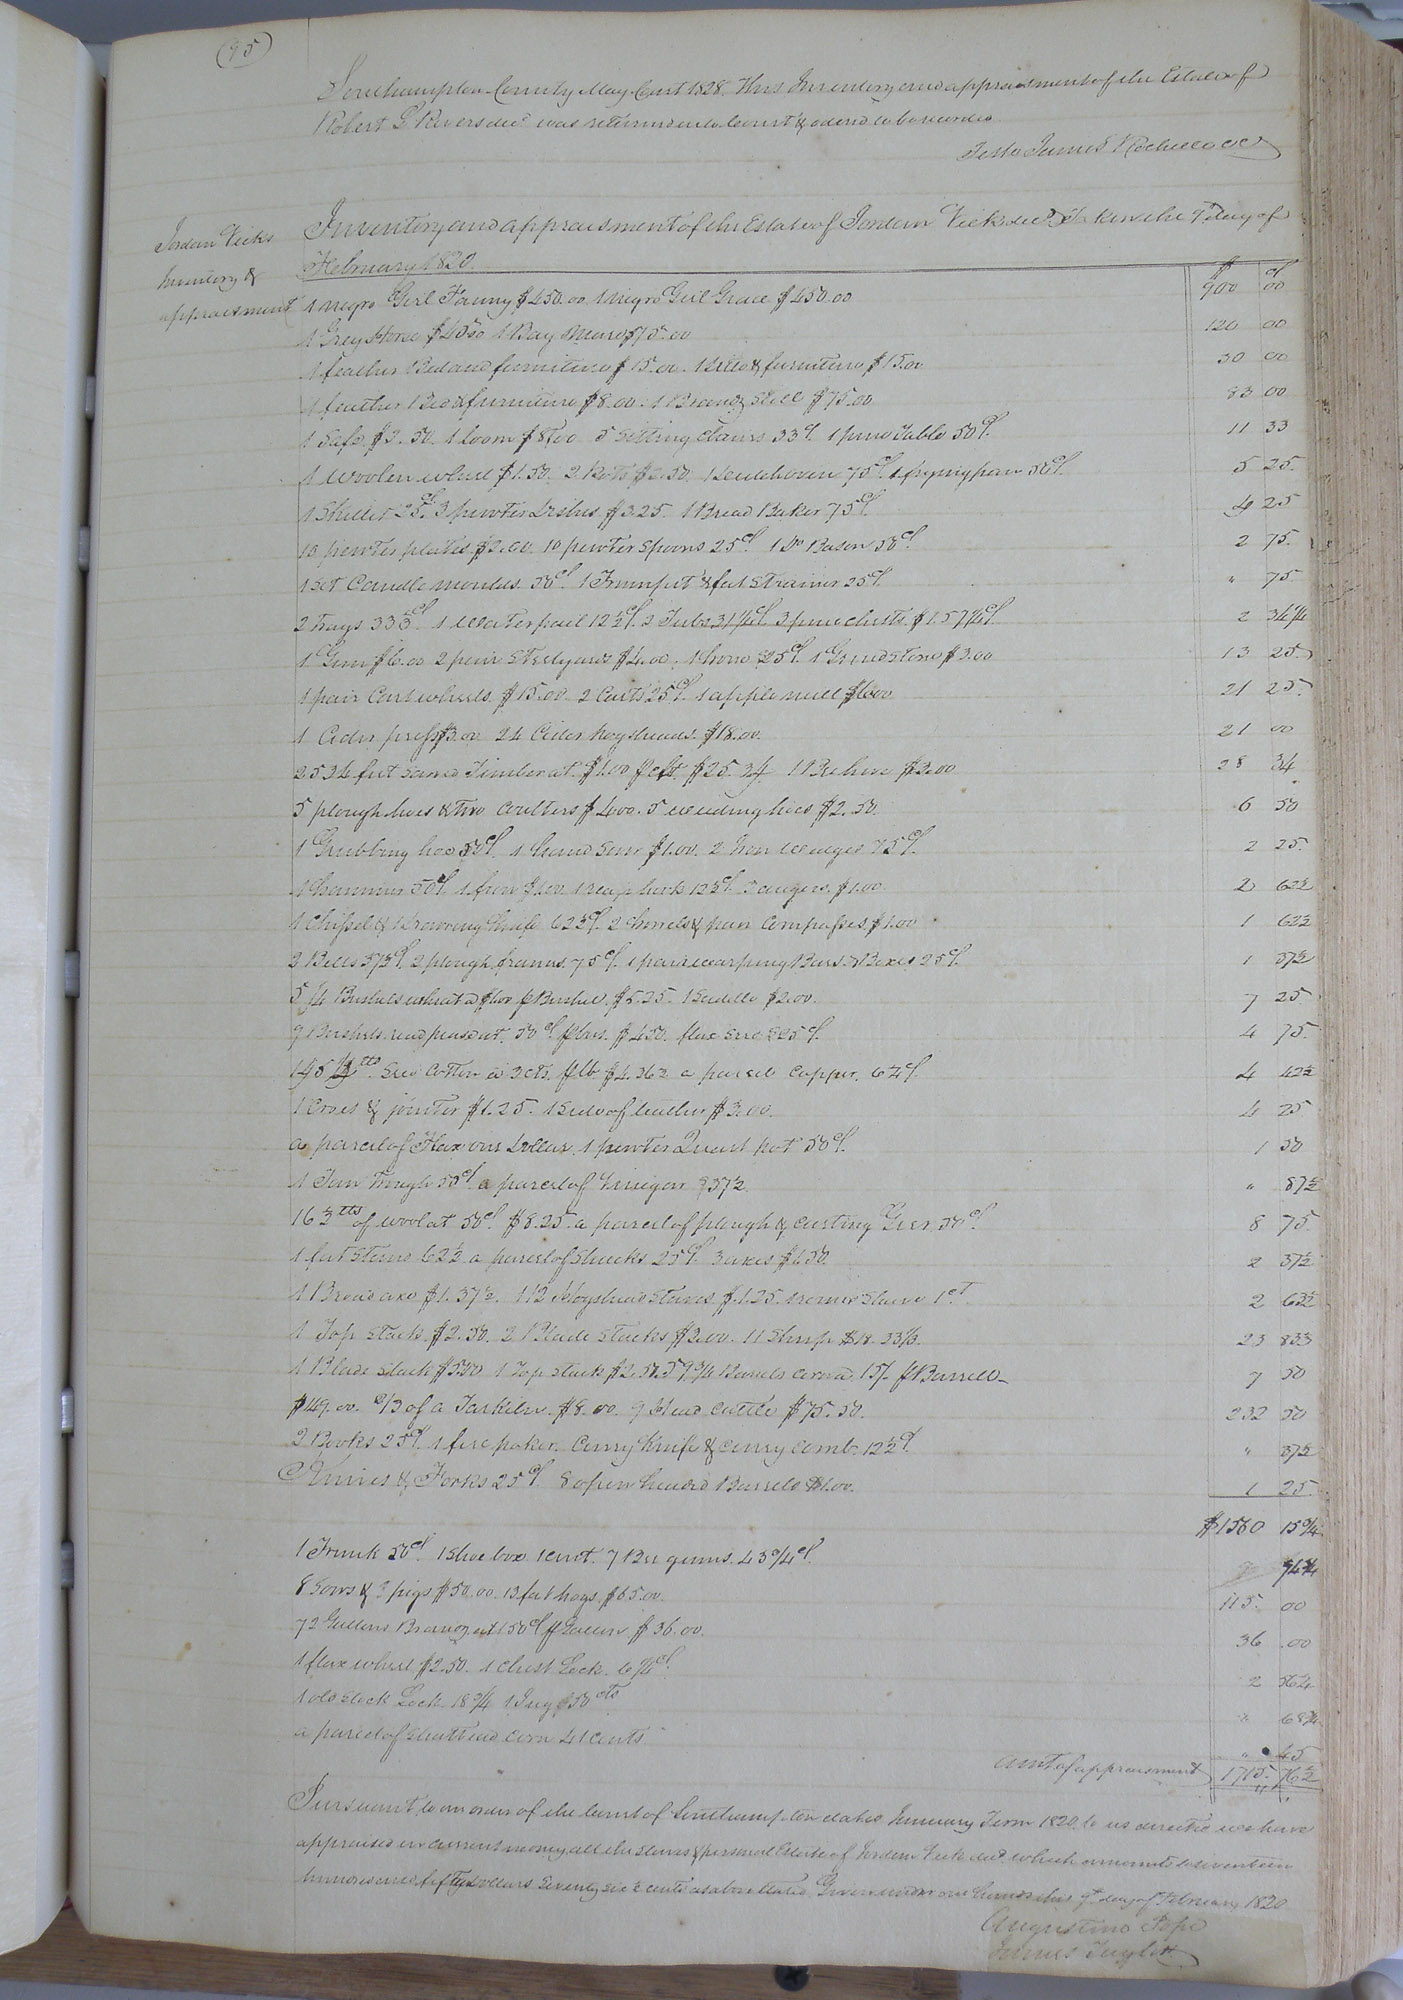 (95)
Southampton County May Court 1828. This Inventory and appraisment of the Estate of
Robert G Rivers decd was returned into Court & ordered to be recorded
Teste James Rochelle CC
Jordan Vicks
Inventory &
appraisment
Inventory and appraisment of the Estate of Jordan Vick decd. Taken the 9 day of
February 1820.
$ cts
1 negro Girl Fanny $450.00 1 negro Girl Grace $450.00 900 00
1 Grey Horse 1 Bay Mare $75.00 120 00
1 feather Bed and furniture $15.00 1 ditto & furniture $15.00 30 00
1 feather Bed & furniture $8.00. 1 Brandy Still $75.00 83 00
1 Safe 1 loom 5 Sitting Chairs 33 cts 1 pine Table 50 cts 11 33
1 woolen wheel $1.50. 2 Pots $2.50. 1 75 cts 1 frying pan 50 cts. 5 25
1 Skillet 25 cts 3 pewter Dishes $3.25. 1 Bread Baker 75 cts 4 25
10 pewter plates $2.00. 10 pewter Spoons 25 cts 1 do Bason 50 cts 2 75
1 set Candle moulds. 50 cts & fat Strainer 25 cts " 75
2 Trays 33 1/3 cts. 1 Water pail 12½ cts. 2 Tubs 31¼ cts 3 pine chests. $1.57¼ cts 2 34¼
1 Gun $6.00 2 pair Steelyards $4.00. 1 hone 25 cts 1 Grindstone $3.00 13 25
1 pair Cart wheels. $15.00. 2 Carts 25 cts 1 apple mill $6.00 21 25
1 Cider press $3.00 24 Cider hogsheads. $18.00. 21 00
2534 feet Sawed Timber at $1.00 $25.34 1 Bee hive $3.00 28 34
5 plough hoes & two Coulters $4.00. 5 weeding hoes $2.50. 6 50
1 Grubbing hoe 50 cts 1 hand Saw $1.00. 2 Iron Wedges 75 cts. 2 25
1 hammer 50 cts 1 frow $1.00 1 reap hook 12½ cts 3 augers. $1.00 2 62½
1 Chissel & 1 Drawing Knife 62½ cts. 2 & pair Compasses $1.00 1 62½
2 Bells 37½ cts. 2 plough frames. 75 cts. 1 pair warping Bars & Boxes 25 cts. 1 37½
5¼ Bushels wheat a $1.00 p Bushel $5.25. 1 Saddle $2.00. 7 25
9 Bushels read peas at 50 cts p Bus. $4.50. flax Seed 25 cts. 4 75
145½ lbs Seed Cotton a 3 cts p lb $4.36½ a parcel Copper. 6¼ cts. 4 42½
1 & jointer $1.25. 1 Side of leather $3.00. 4 25
a parcel of Flax one Dollar. 1 pewter Quart pot 50 cts. 1 50
1 Tan Trough 50 cts a parcel of Vinegar 37½ " 87½
16½ lbs of wool at 50 cts $8.25. a parcel of plough & carting Geer 50 cts 8 75
1 fat Stand 62½ a parcel of Shucks 25 cts 3 axes $1.50. 2 37½
1 Broad axe $1.37½. 112 Hogshead Staves $1.25. 1 ct 2 63½
1 Top Stack. $2.50. 2 Blade Stacks $3.00. 11 Sheep $18.33⅓. 23 83⅓
1 Blade Stack $5.00 1 Top Stack $2.50. 59¾ Barrels corn a 15/ p Barrell 7 50
$149.00. 2/3 of a Tarkiln. $8.00. 9 Head Cattle $75.50. 232 50
2 Books 25 cts 1 fire poker. Curry Knife & curry Comb 12½ cts. " 37½
Knives & Forks 25 cts 8 open headed Barrels $1.00. 1 25
$1560 15¾
1 Trunk 50 cts. 1 Shoe box 1 cent. 7 Bee gums. 43¾ cts. 94¾
8 Sows & 3 pigs $50.00 13 fat hogs $65.00. 115 00
72 Gallons Brandy at 50 cts p Gallon $36.00. 36 .00
1 flax wheel $2.50. 1 Chest Lock. 6¼ cts. 2 56¼
1 old Stock Lock. 18¾ 1 Jug 50 cts " 68¾
a parcel of Shattered Corn 41 Cents. " 45
amt of appraisment 1715. 76½
Pursuant to an order of the Court of Southampton dated January Term 1820 to us directed we have
appraised in current money all the slaves & personal Estate of Jordan Vick decd. which amounts to seventeen
hundred and fifty dollars Seventy six ½ cents as above Stated. Given under our hands this 9th day of February 1820
Augustine Pope
James Taylor